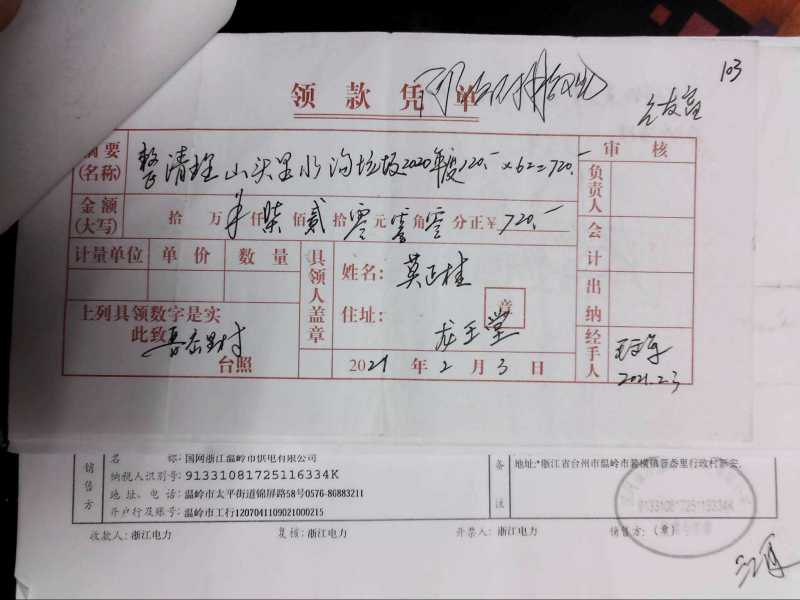 103
领款凭单
摘要(名称) 整清理山头里水沟垃圾2020年度120.-×6个=720.-
审核
金额(大写) 拾万仟柒佰贰拾零元零角零分正¥720.-
负责人
计量单位 单价 数量
具领人盖章
姓名: 莫正桂
会计
章
住址: 龙王堂
出纳
上列具领数字是实
此致
台照
2021年2月3日
经手人
2021.2.3
销售方
名称: 国网浙江温岭市供电有限公司
纳税人识别号: 91331081725116334K
地址、电话: 温岭市太平街道锦屏路58号0576-86883211
开户行及账号: 温岭市工行1207041109021000215
备注
地址:*浙江省台州市温岭市箬横镇晋岙里行政村新安.
91331081725116334K
收款人: 浙江电力 复核: 浙江电力 开票人: 浙江电力 销售方:(章)